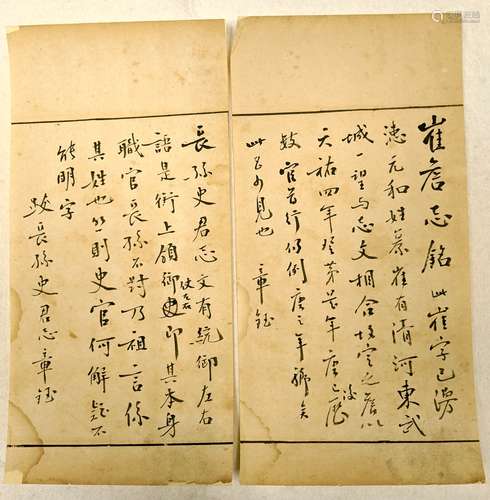 崔詹志銘 此崔字已漫
漶元和姓纂崔有清河東武
城一望与志文相合故定之詹以
天祐四年葬年唐已歷
官行仍例唐之年號矣
此少見也 章鈺
長孫史君志文有統御左右
語是銜上領御史即其本身
職官長孫不對乃祖言係
其姓也則史官何解疑不
能明字
跋長孫史君志章鈺